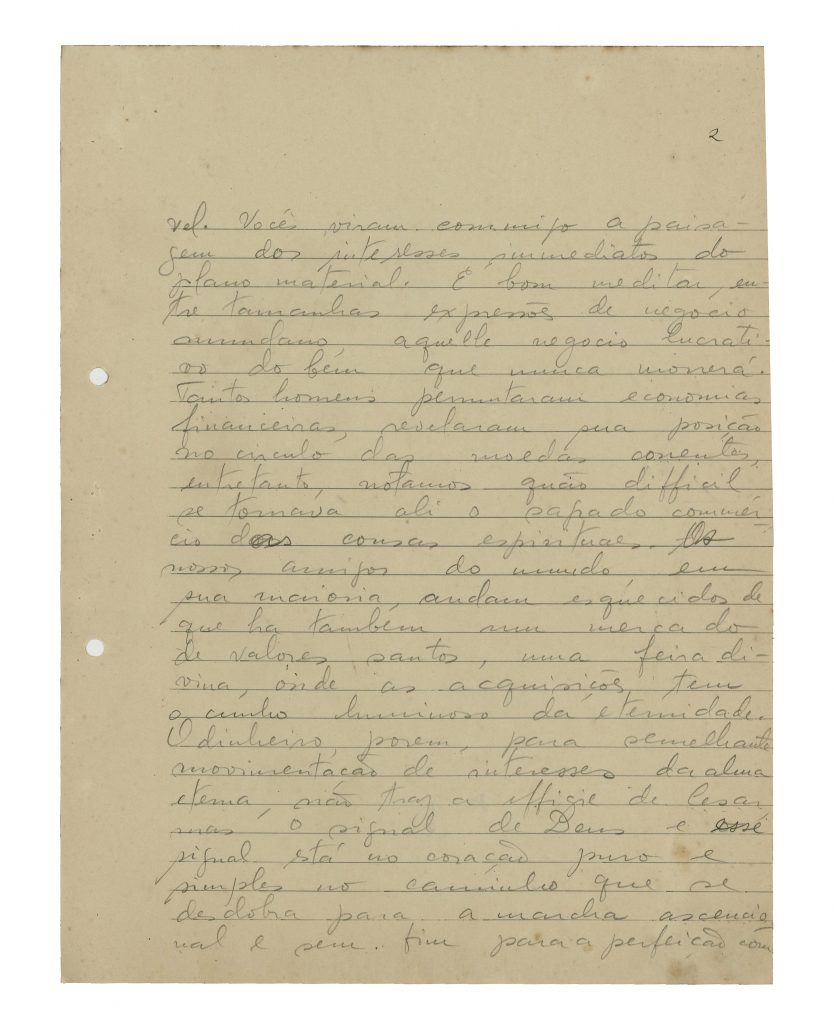 2
vel. Vocês viram commigo a paisa-
gem dos interesses immediatos do
plano material. É bom meditar, en-
tre tamanhas expressões de negocio
mundano, aquelle negocio lucrati-
vo do bem que nunca morrerá.
Tantos homens permutaram economias
financeiras, revelaram sua posição
no circulo das moedas correntes,
entretanto, notamos quão difficil
se tornava ali o sagrado commér-
cio das cousas espirituaes. Os
nossos amigos do mundo, em
sua maioria, andam esquecidos de
que ha tambem um mercado
de valores santos, uma feira di-
vina, onde as acquisições tem
o cunho luminoso da eternidade.
O dinheiro, porem, para semelhante
movimentação de interesses da alma
eterna, não traz a effigie de Cesar
mas o signal de Deus e esse
signal está no coração puro e
simples no caminho que se
desdobra para a marcha ascencio
nal e sem fim para a perfeição com